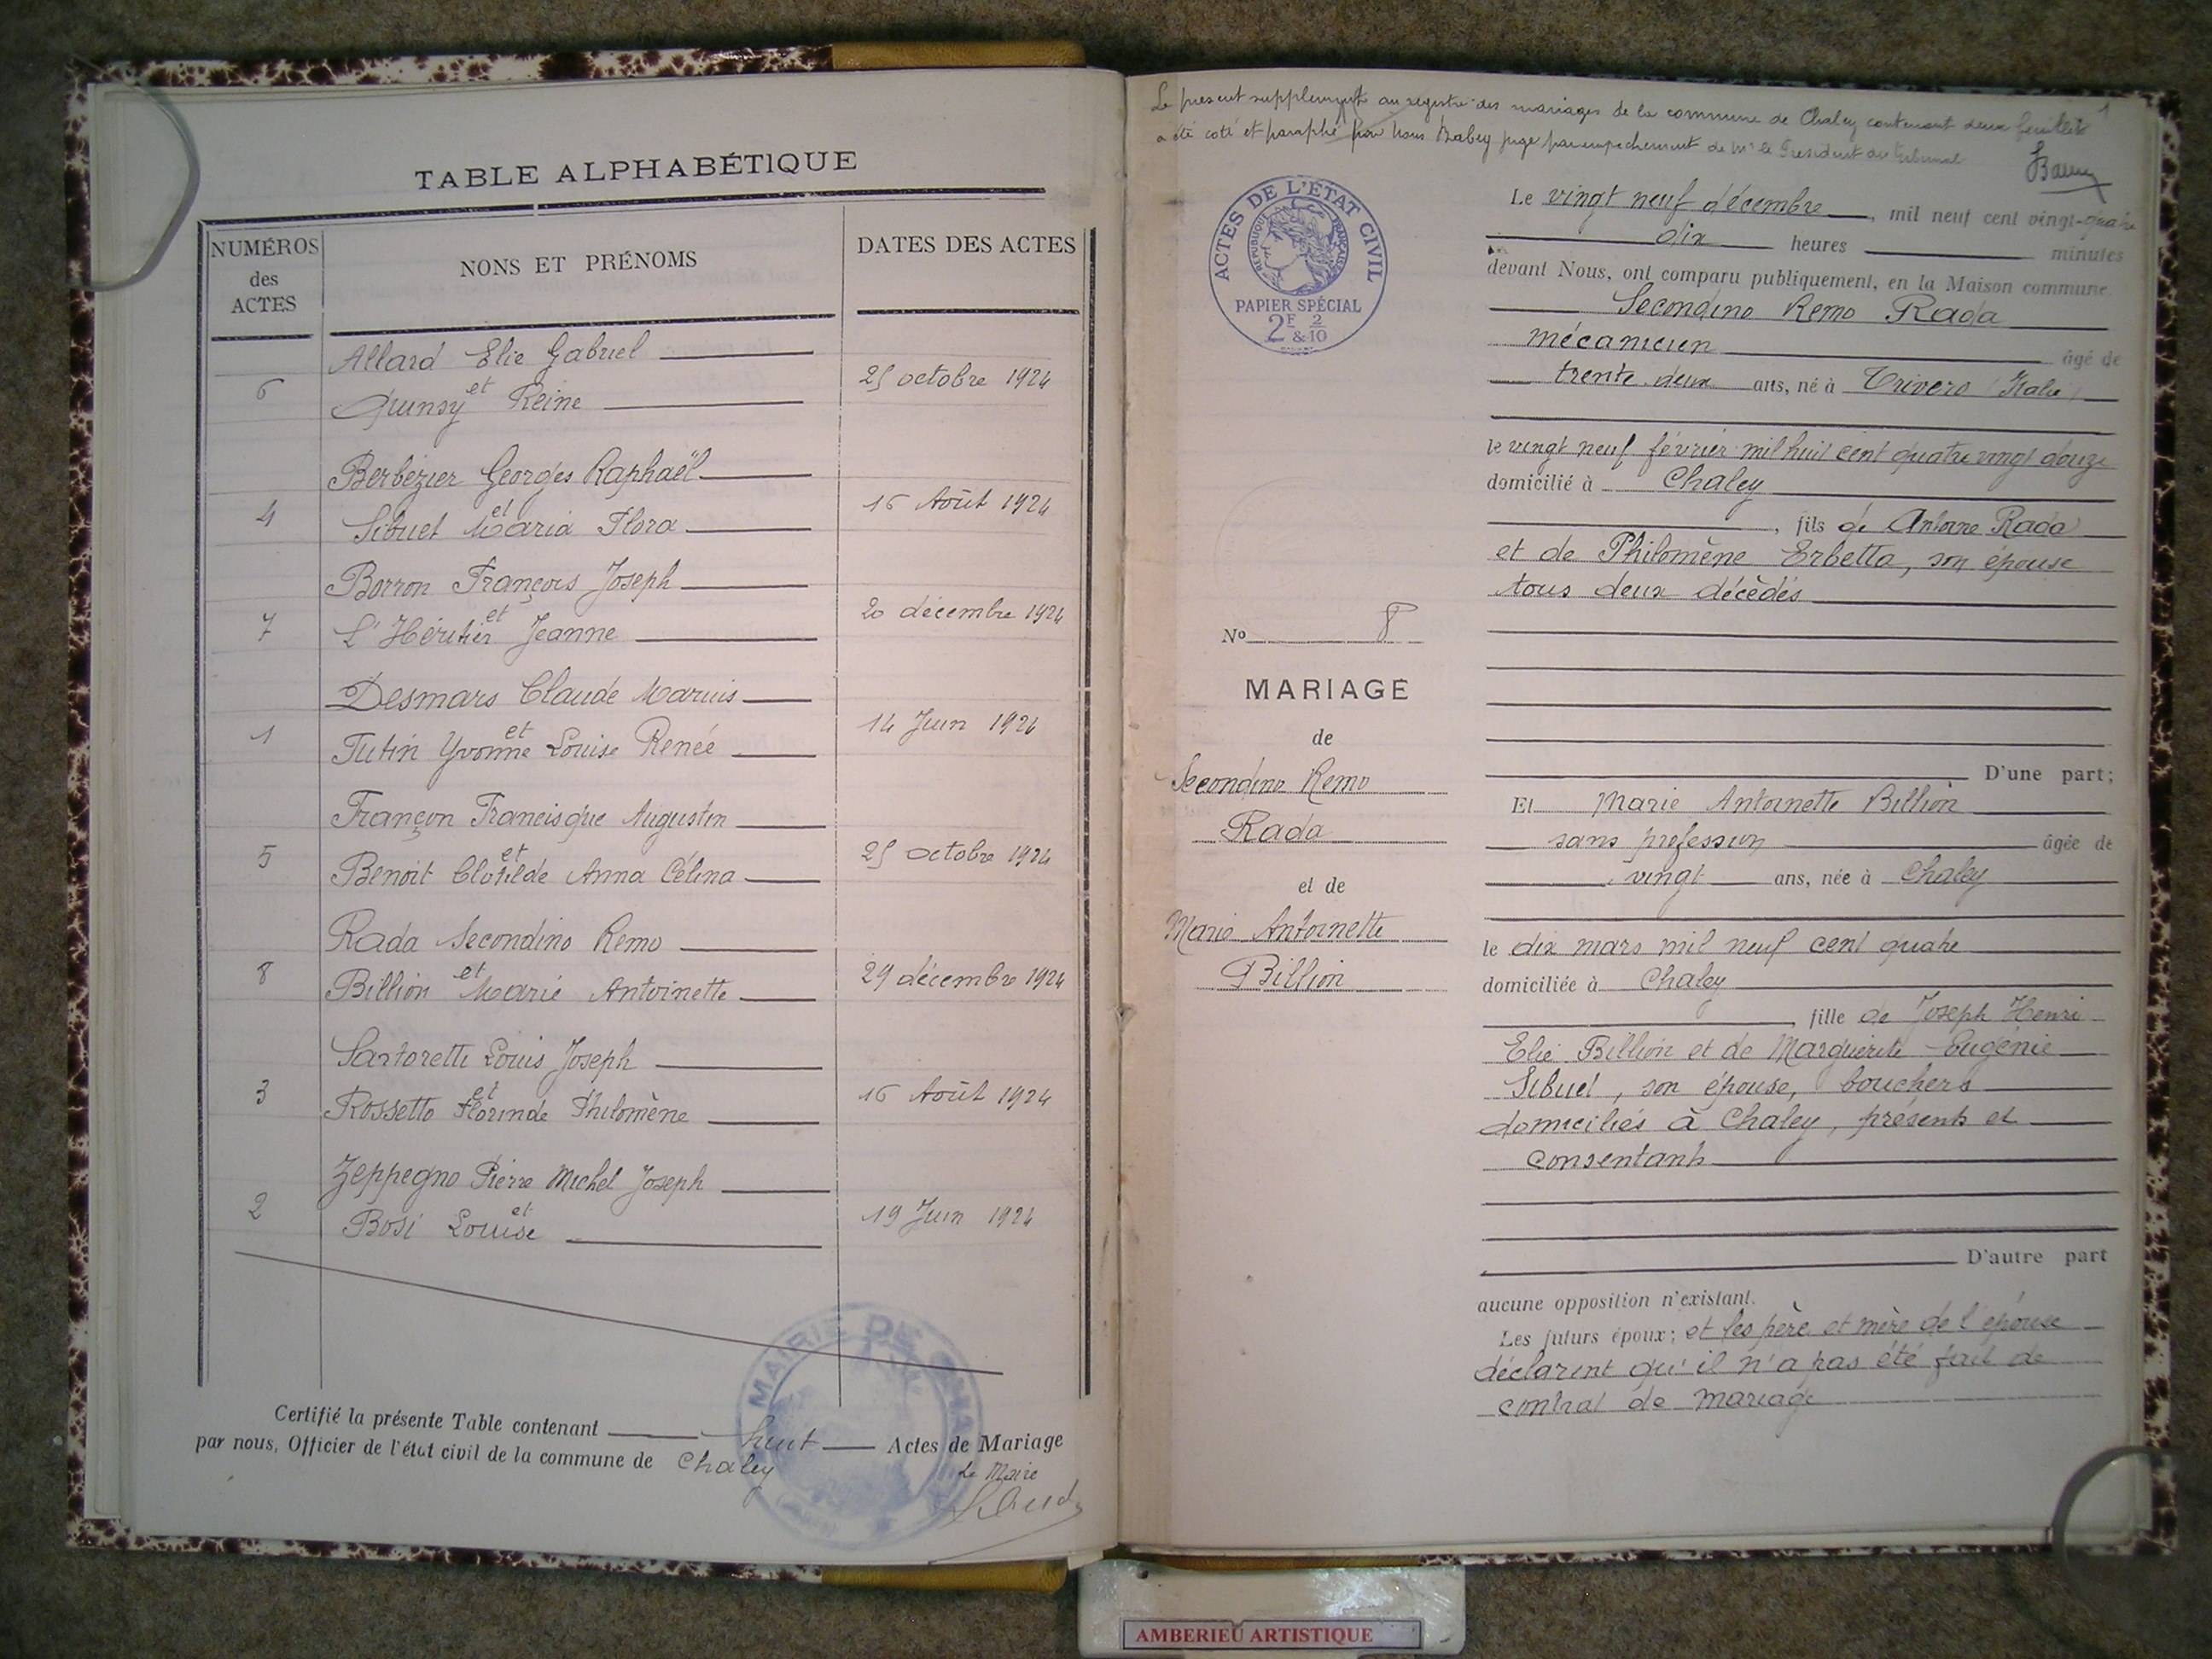 TABLE ALPHABÉTIQUE
NUMÉROS
des
ACTES
NONS ET PRÉNOMS
DATES DES ACTES
Allard Elie Gabriel
6 et 25 octobre 1924
Quinsy Reine
Berbézier Georges Raphaël
4 et 16 Août 1924
Sibuet Maria Flora
Borron François Joseph
7 et 20 décembre 1924
L'Héritier Jeanne
Desmars Claude Marius
1 et 14 Juin 1924
Tutin Yvonne Louise Renée
Françon Francisque Augustin
5 et 25 octobre 1924
Benoit Clotilde Anna Célina
Rada Secondino Remo
8 et 29 décembre 1924
Billion Marie Antoinette
Sartoretti Louis Joseph
3 et 16 Août 1924
Rossetto Florinde Philomène
Zeppegno Pierre Michel Joseph
2 et 19 Juin 1924
Bosi Louise
MAIRIE DE CHALEY
Certifié la présente Table contenant huit Actes de Mariage
par nous, Officier de l'état civil de la commune de Chaley
Le Maire
Le présent supplément au registre des mariages de la commune de Chaley contenant deux feuillets
1
a été coté et paraphé par Nous Babey juge par empêchement de Mr le Président du tribunal
ACTES DE L'ÉTAT CIVIL
RÉPUBLIQUE FRANÇAISE
PAPIER SPÉCIAL
2F & 2/10
Le vingt neuf décembre, mil neuf cent vingt-quatre
dix heures minutes
devant Nous, ont comparu publiquement, en la Maison commune
Secondino Remo Rada
mécanicien âgé de
trente deux ans, né à Trivero (Italie)
le vingt neuf février mil huit cent quatre vingt douze
domicilié à Chaley
, fils de Antoine Rada
et de Philomène Erbetta, son épouse
tous deux décédés
No 8
MARIAGE
de
Secondino Remo
Rada
et de
Marie Antoinette
Billion
D'une part;
Et Marie Antoinette Billion
sans profession âgée de
vingt ans, née à Chaley
le dix mars mil neuf cent quatre
domiciliée à Chaley
, fille de Joseph Henri
Elie Billion et de Marguerite Eugénie
Sibuet, son épouse, bouchers
domiciliés à Chaley, présents et
consentants
D'autre part
aucune opposition n'existant.
Les futurs époux; et les père et mère de l'épouse
déclarent qu'il n'a pas été fait de
contrat de mariage
AMBERIEU ARTISTIQUE